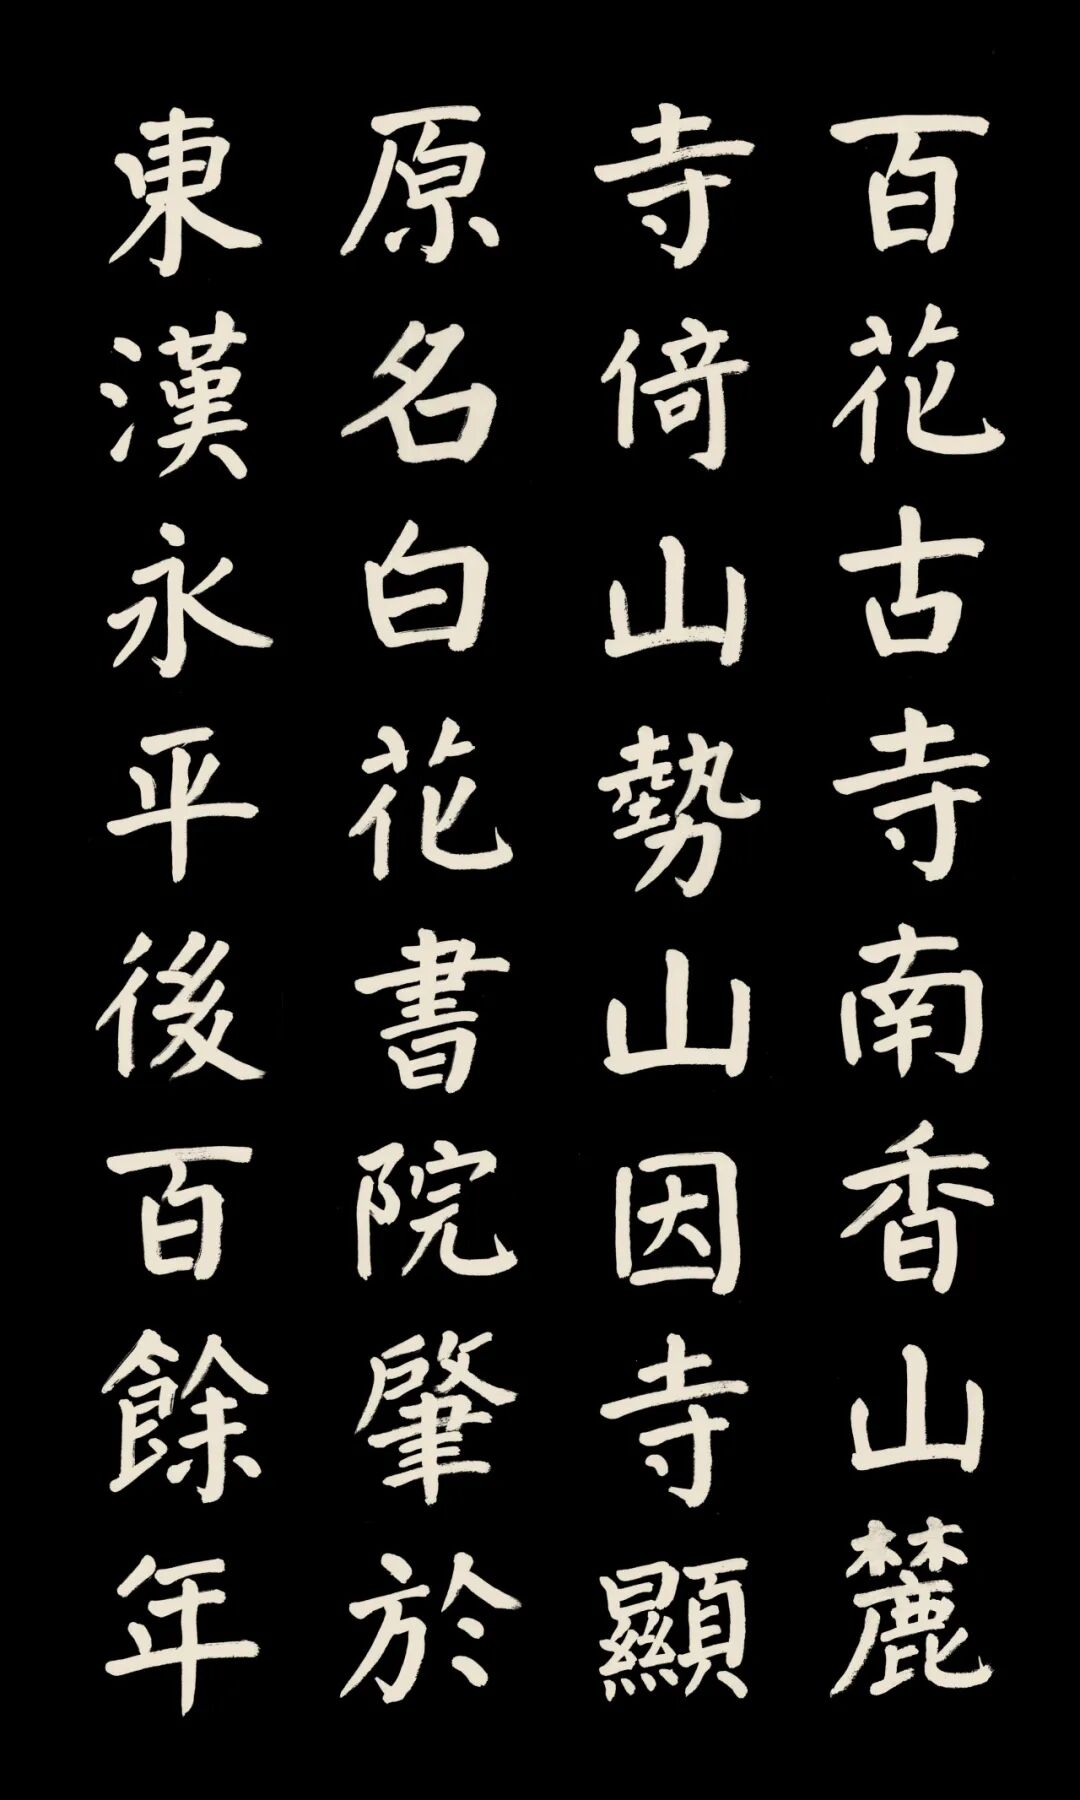 百花古寺南香山麓
寺倚山勢山因寺顯
原名白花書院肇於
東漢永平後百餘年